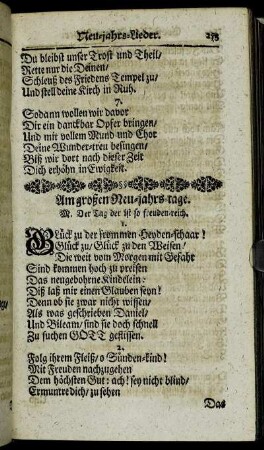 Neu-jahrs-Lieder. 233
Du bleibst unser Trost und Theil/
Rette nur die Deinen/
Schleuß des Friedens Tempel zu/
Und stell deine Kirch in Ruh.
7.
Sodann wollen wir davor
Dir ein danckbar Opfer bringen/
Und mit vollem Mund und Chor
Deine Wunder-treu besingen/
Biß wir dort nach dieser Zeit
Dich erhöhn in Ewigkeit.
Am großen Neu-jahrs-tage.
M. Der Tag der ist so freuden-reich.
1.
Glück zu der frommen Heyden-schaar!
Glück zu/ Glück zu den Weisen/
Die weit vom Morgen mit Gefahr
Sind kommen hoch zu preisen
Das neugebohrne Kindelein:
Diß laß mir einen Glauben seyn!
Denn ob sie zwar nicht wissen/
Als was geschrieben Daniel/
Und Bileam/ sind sie doch schnell
Zu suchen GOTT geflissen.
2.
Folg ihrem Fleiß/ o Sünden-kind!
Mit Freuden nachzugehen
Dem höchsten Gut: ach! sey nicht blind/
Ermuntre dich/ zu sehen
Das